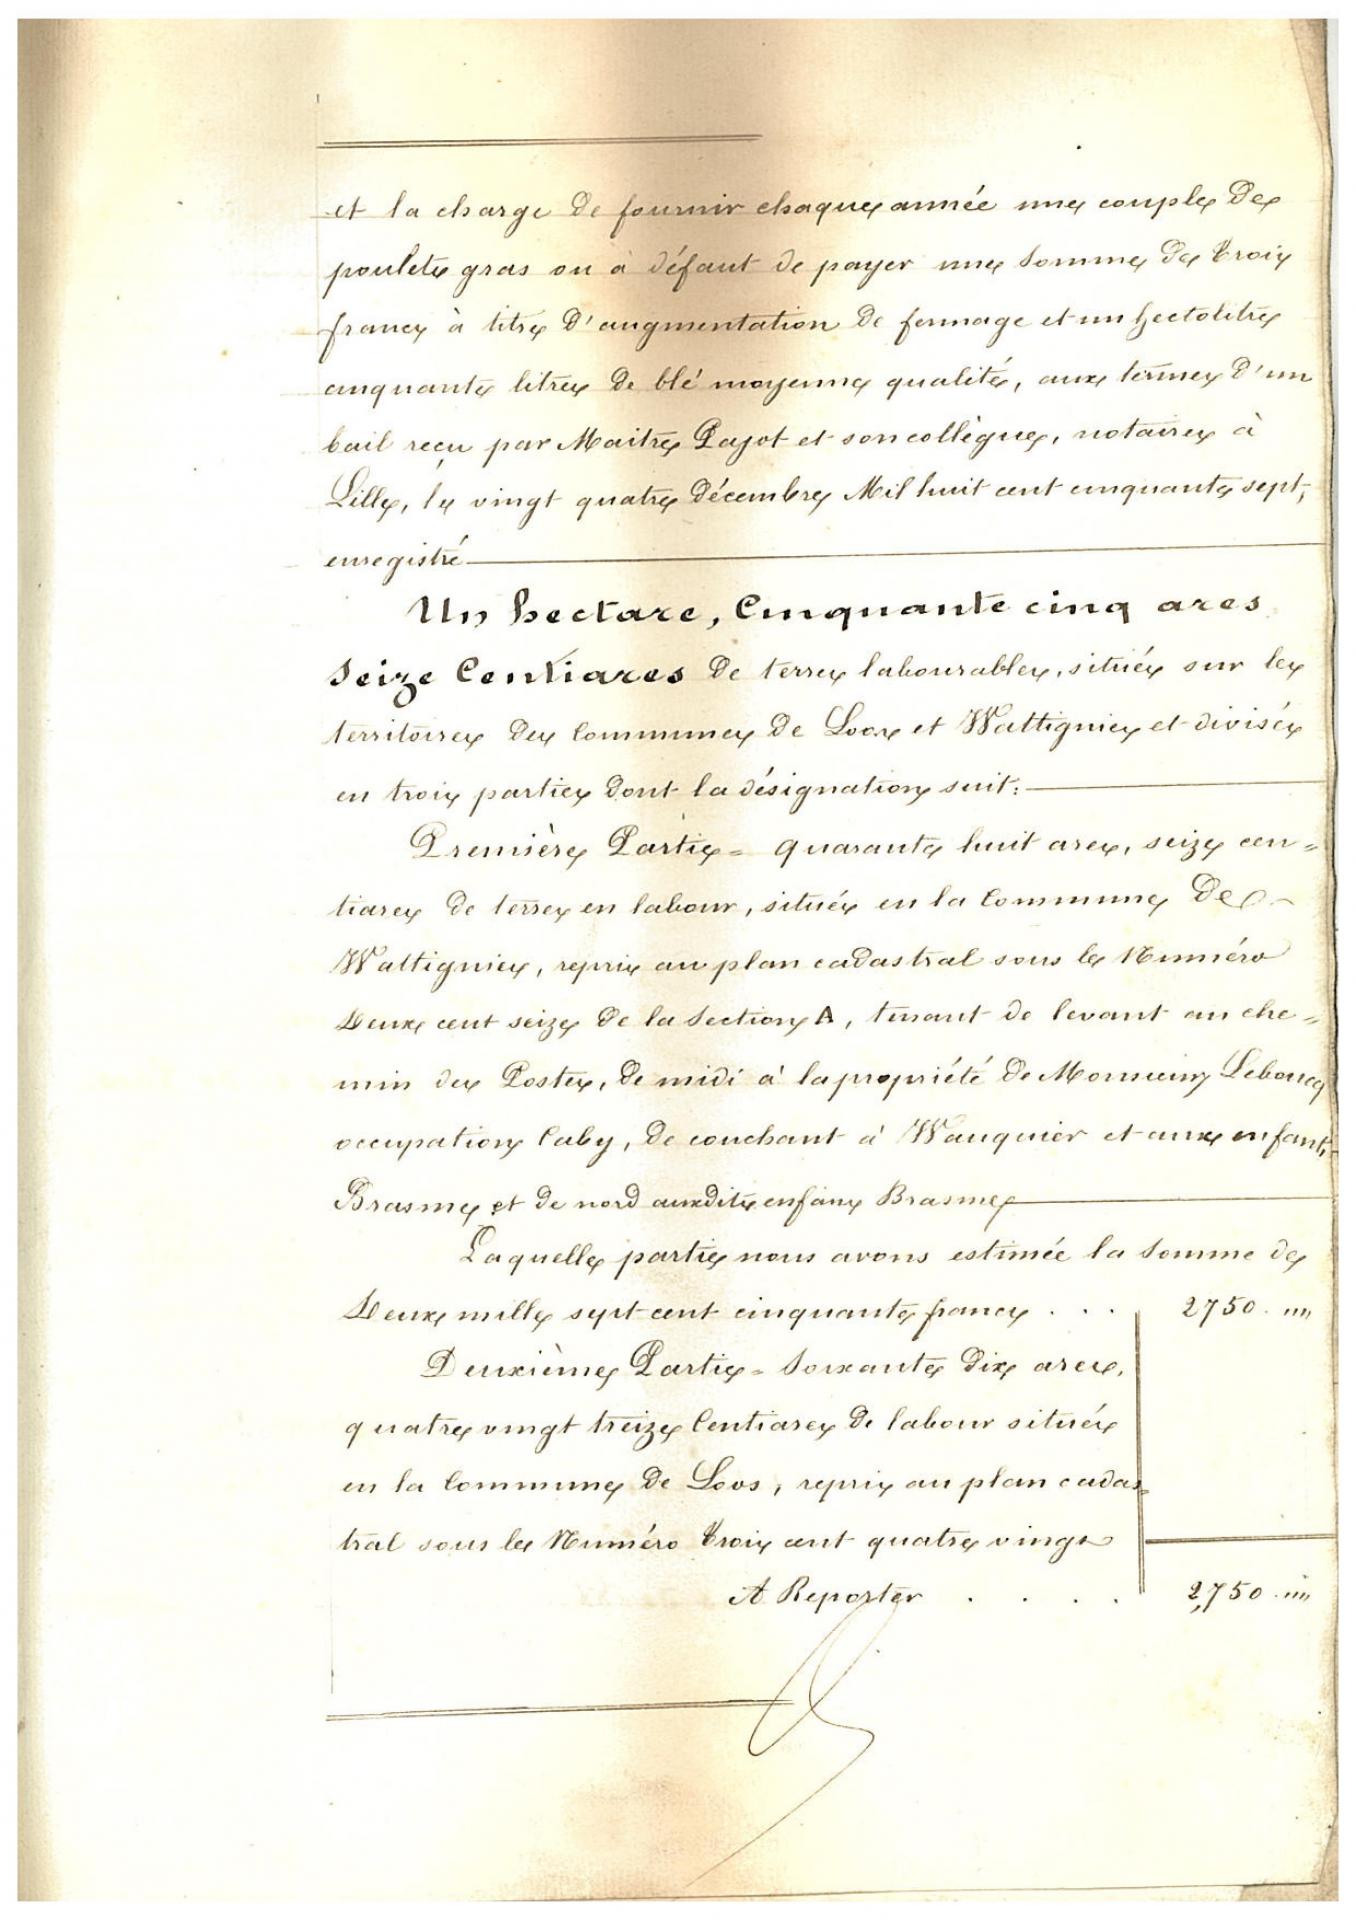 et la charge de fournir chaque année une couple de
poulets gras ou à défaut de payer une somme de trois
francs à titre d'augmentation de fermage et un hectolitre
cinquante litres de blé moyenne qualité, aux termes d'un
bail reçu par Maitre Pajot et son collègue, notaires à
Lille, le vingt quatre décembre Mil huit cent cinquante sept,
enregistré
Un hectare, Cinquante cinq ares
Seize Centiares de terres labourables, situés sur les
territoires des Communes de Loos et Wattignies et divisés
en trois parties dont la désignation suit:
Première Partie = quarante huit ares, seize cen=
tiares de terres en labour, situés en la Commune de
Wattignies, repris au plan cadastral sous le Numéro
Deux cent seize de la Section A, tenant de levant au che=
min des Postes, de midi à la propriété de Monsieur Leboucq
occupation Caby, de couchant à Wauquier et aux enfants
Brasme et de nord auxdits enfans Brasme
Laquelle partie nous avons estimée la somme de
Deux mille sept cent cinquante francs . . . 2750 . ""
Deuxième Partie = Soixante dix ares,
quatre vingt treize Centiares de labour situés
en la Commune de Loos, repris au plan cadas=
tral sous le Numéro trois cent quatre vingt
A Reporter . . . . 2,750 . ""